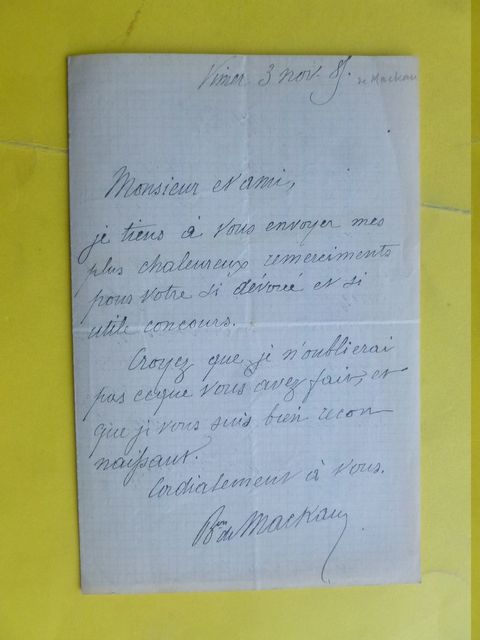 Vimer 3 nov. 85.
de Mackau
Monsieur et ami,
je tiens à vous envoyer mes
plus chaleureux remerciments
pour votre si dévoué et si
utile concours.
Croyez que je n'oublierai
pas ce que vous avez fait, et
que je vous suis bien recon
naissant.
Cordialement à vous.
Bon de Mackau